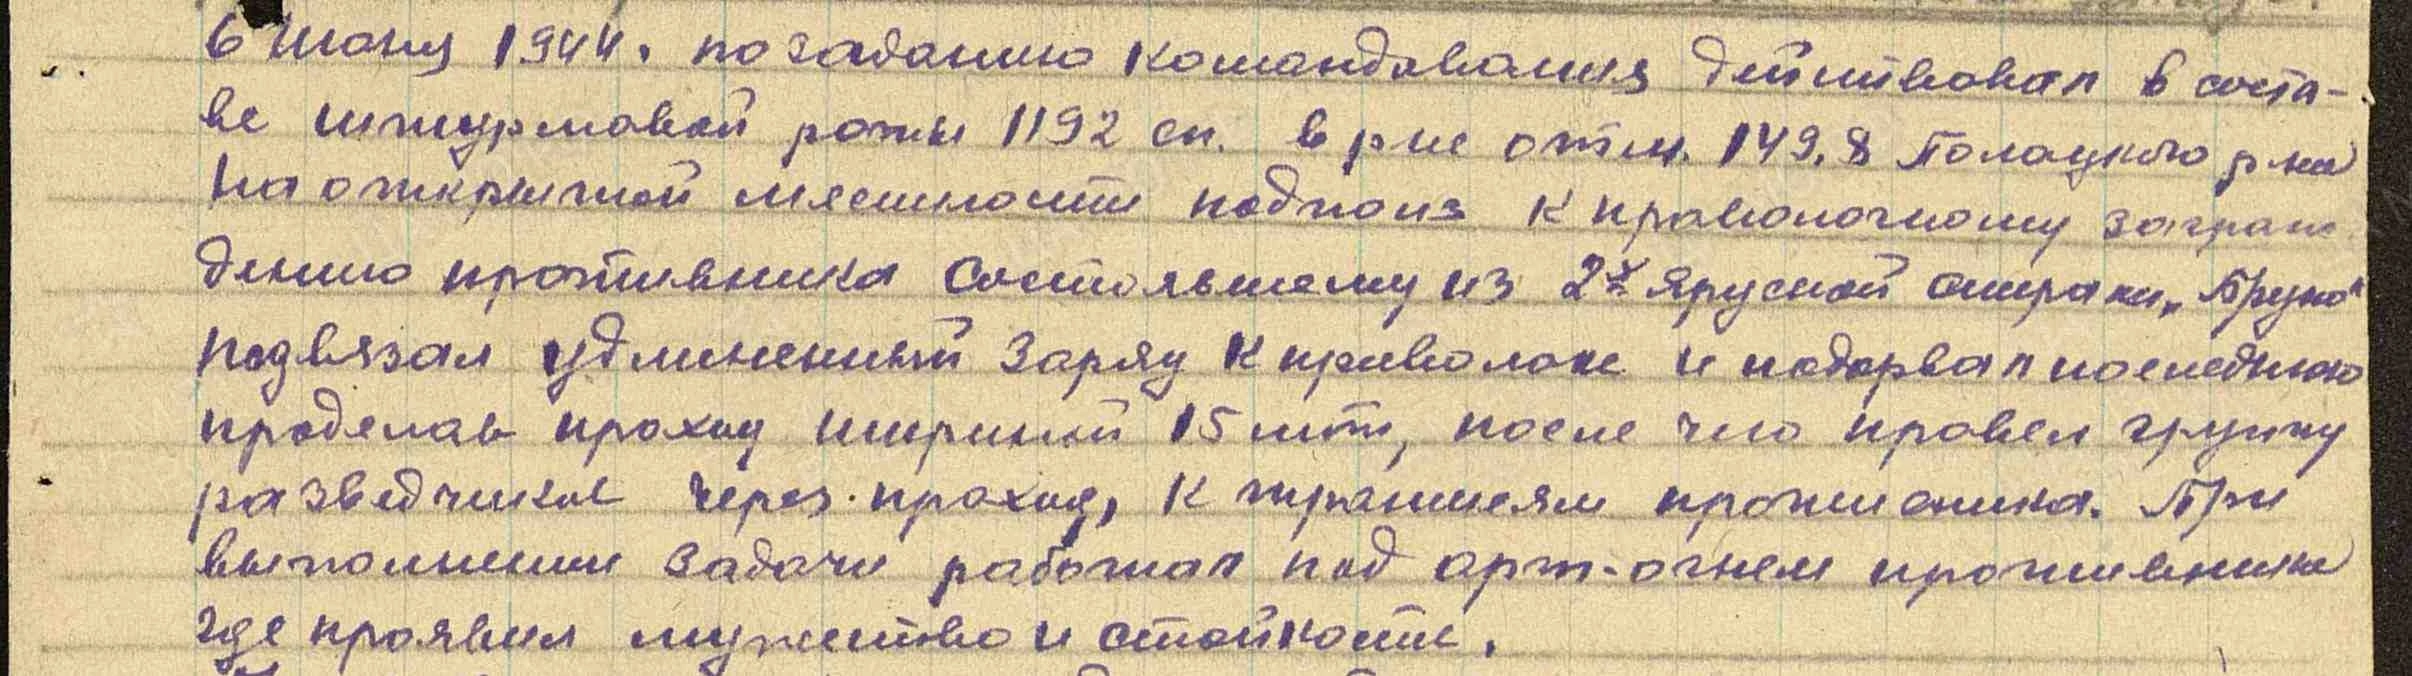 6 июня 1944. по заданию командования действовал в соста-
ве штурмовой роты 1192 сп. в р-не отм. 149,8 Полоцкого р-на
На открытой местности подполз к проволочному заграж
дению противника состоявшему из 2х ярусной спирали „Бруно"
подвязал удлиненный заряд к проволоке и подорвал последнюю
проделав проход шириной 15 мтр, после чего провел группу
разведчиков через проход, к траншеям противника. При
выполнении задачи работал под арт-огнем противника
где проявил мужество и стойкость.